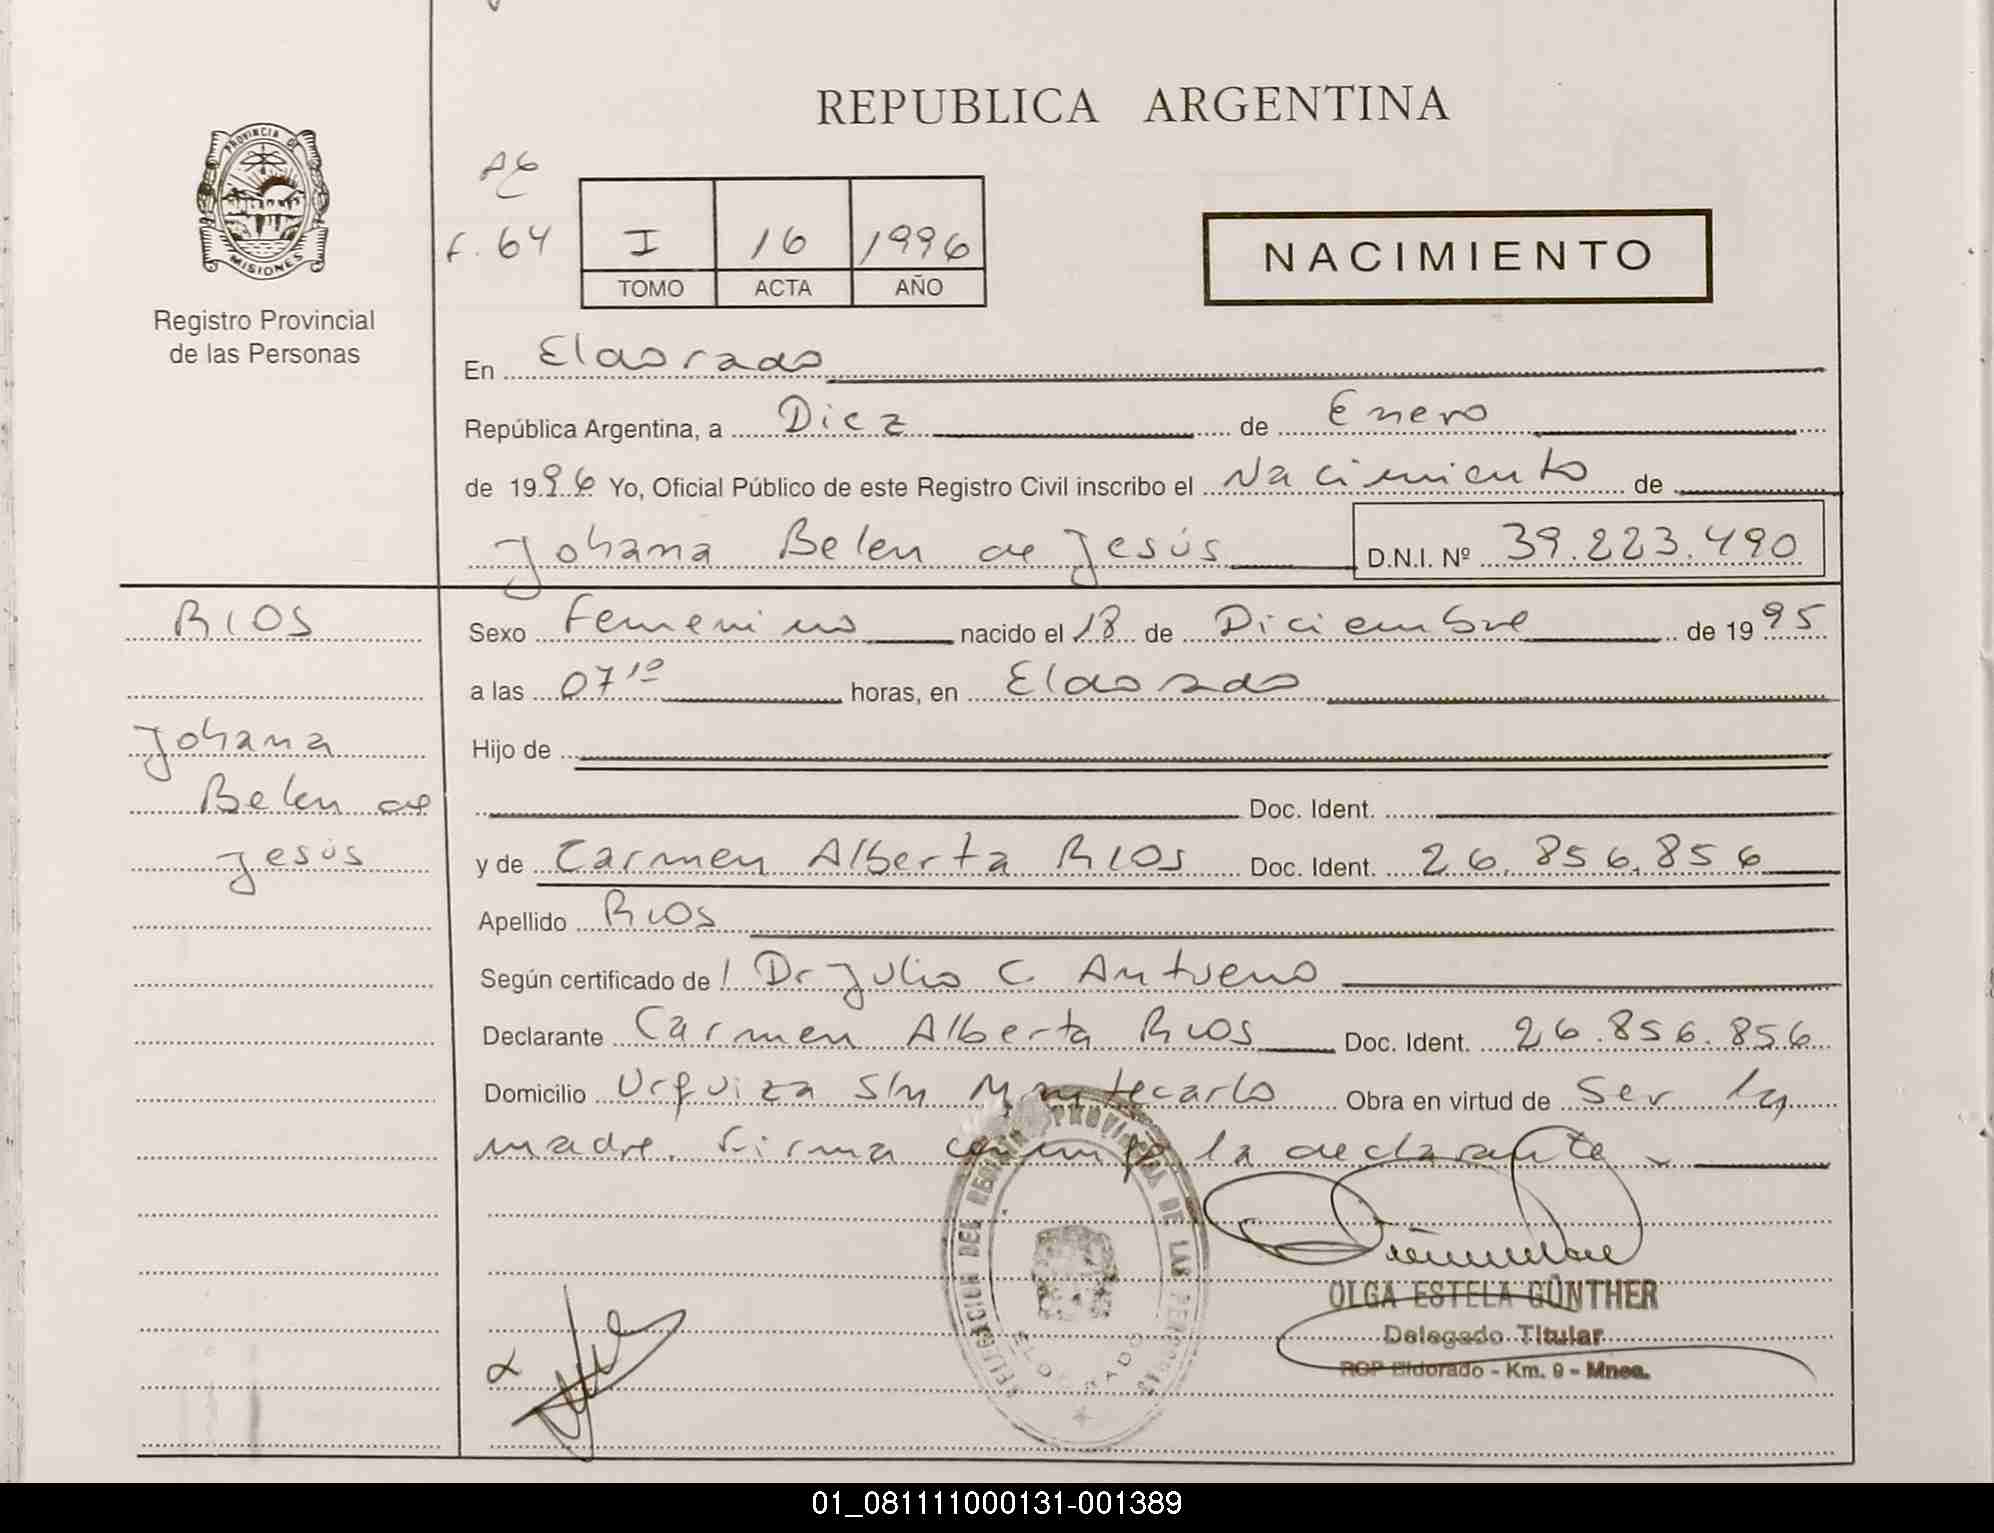 REPUBLICA ARGENTINA
PROVINCIA DE
MISIONES
Registro Provincial
de las Personas
F. 64
I 16 1996
TOMO ACTA AÑO
NACIMIENTO
En Eldorado
República Argentina, a Diez de Enero
de 1996 Yo, Oficial Público de este Registro Civil inscribo el Nacimiento de
Johana Belen de Jesús D.N.I. Nº 39.223.490
RIOS
Johana
Belen de
Jesús
Sexo Femenino nacido el 18 de Diciembre de 1995
a las 07 10 horas, en Eldorado
Hijo de
Doc. Ident.
y de Carmen Alberta RIOS Doc. Ident. 26.856.856
Apellido RIOS
Según certificado de Dr Julio C. Antueno
Declarante Carmen Alberta RIOS Doc. Ident. 26.856.856
Domicilio Urquiza S/n Montecarlo Obra en virtud de ser la
madre. Firma conmigo la declarante
DELEGACION DEL REGISTRO PROVINCIAL DE LAS PERSONAS
ELDORADO
OLGA ESTELA GÜNTHER
Delegado Titular
RCP Eldorado - Km. 9 - Mnes.
01_081111000131-001389